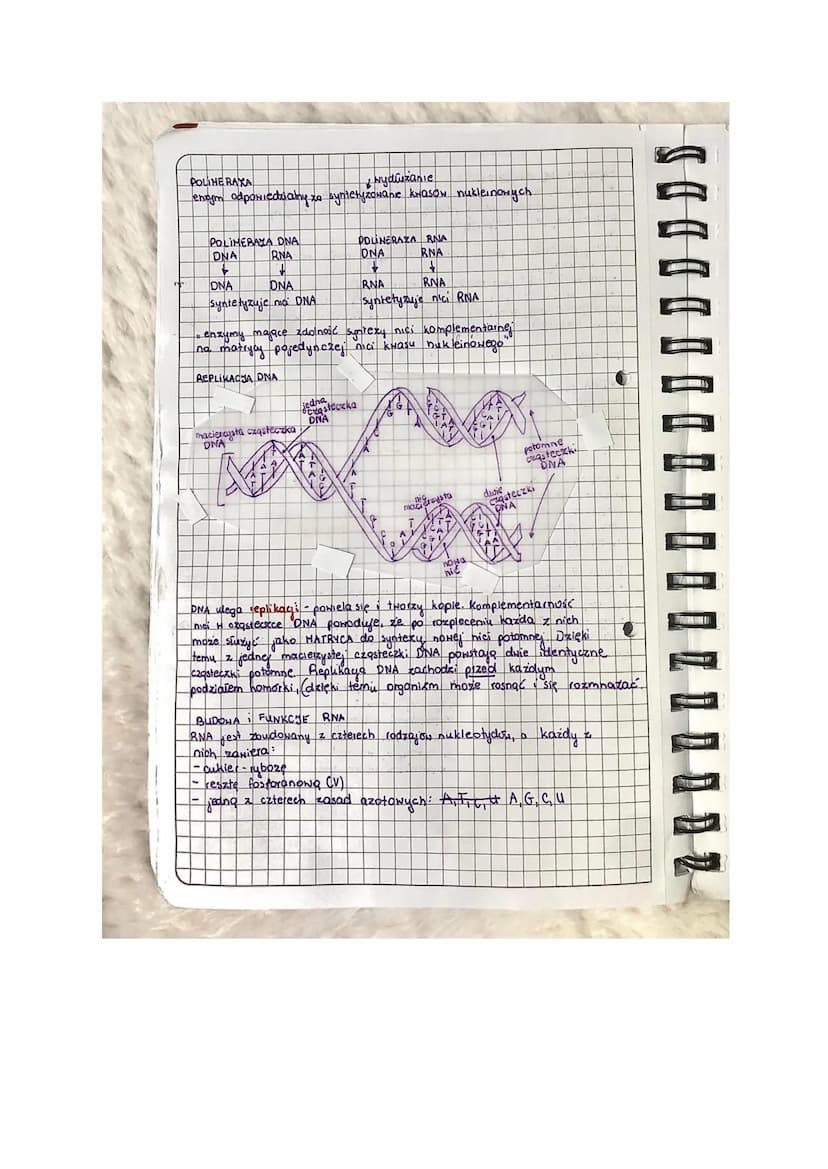 POLIMERAZA
↓ wydłużanie
enzym odpowiedzialny za syntetyzowane kwasów nukleinowych
POLIMERAZA DNA POLIMERAZA RNA
DNA RNA DNA RNA
↓ ↓ ↓ ↓
DNA DNA RNA RNA
syntetyzuje nici DNA syntetyzuje nici RNA
„enzymy mające zdolność syntezy nici komplementarnej
na matrycy pojedynczej nici kwasu nukleinowego"
REPLIKACJA DNA
jedna
cząsteczka
DNA
macierzysta cząsteczka
DNA
potomne
cząsteczki
DNA
nić
macierzysta
dwie
cząsteczki
DNA
nowa
nić
DNA ulega replikacji - powiela się i tworzy kopie. Komplementarność
nici w cząsteczce DNA powoduje, że po rozpleceniu każda z nich
może służyć jako MATRYCA do syntezy nowej nici potomnej. Dzięki
temu z jednej macierzystej cząsteczki DNA powstają dwie identyczne
cząsteczki potomne. Replikacja DNA zachodzi przed każdym
podziałem komórki, (dzięki temu organizm może rosnąć i się rozmnażać.
BUDOWA i FUNKCJE RNA
RNA jest zbudowany z czterech rodzajów nukleotydów, a każdy z
nich zawiera:
- cukier - rybozę
- resztę fosforanową (V)
- jedną z czterech zasad azotowych: A,T,C,U A,G,C,U